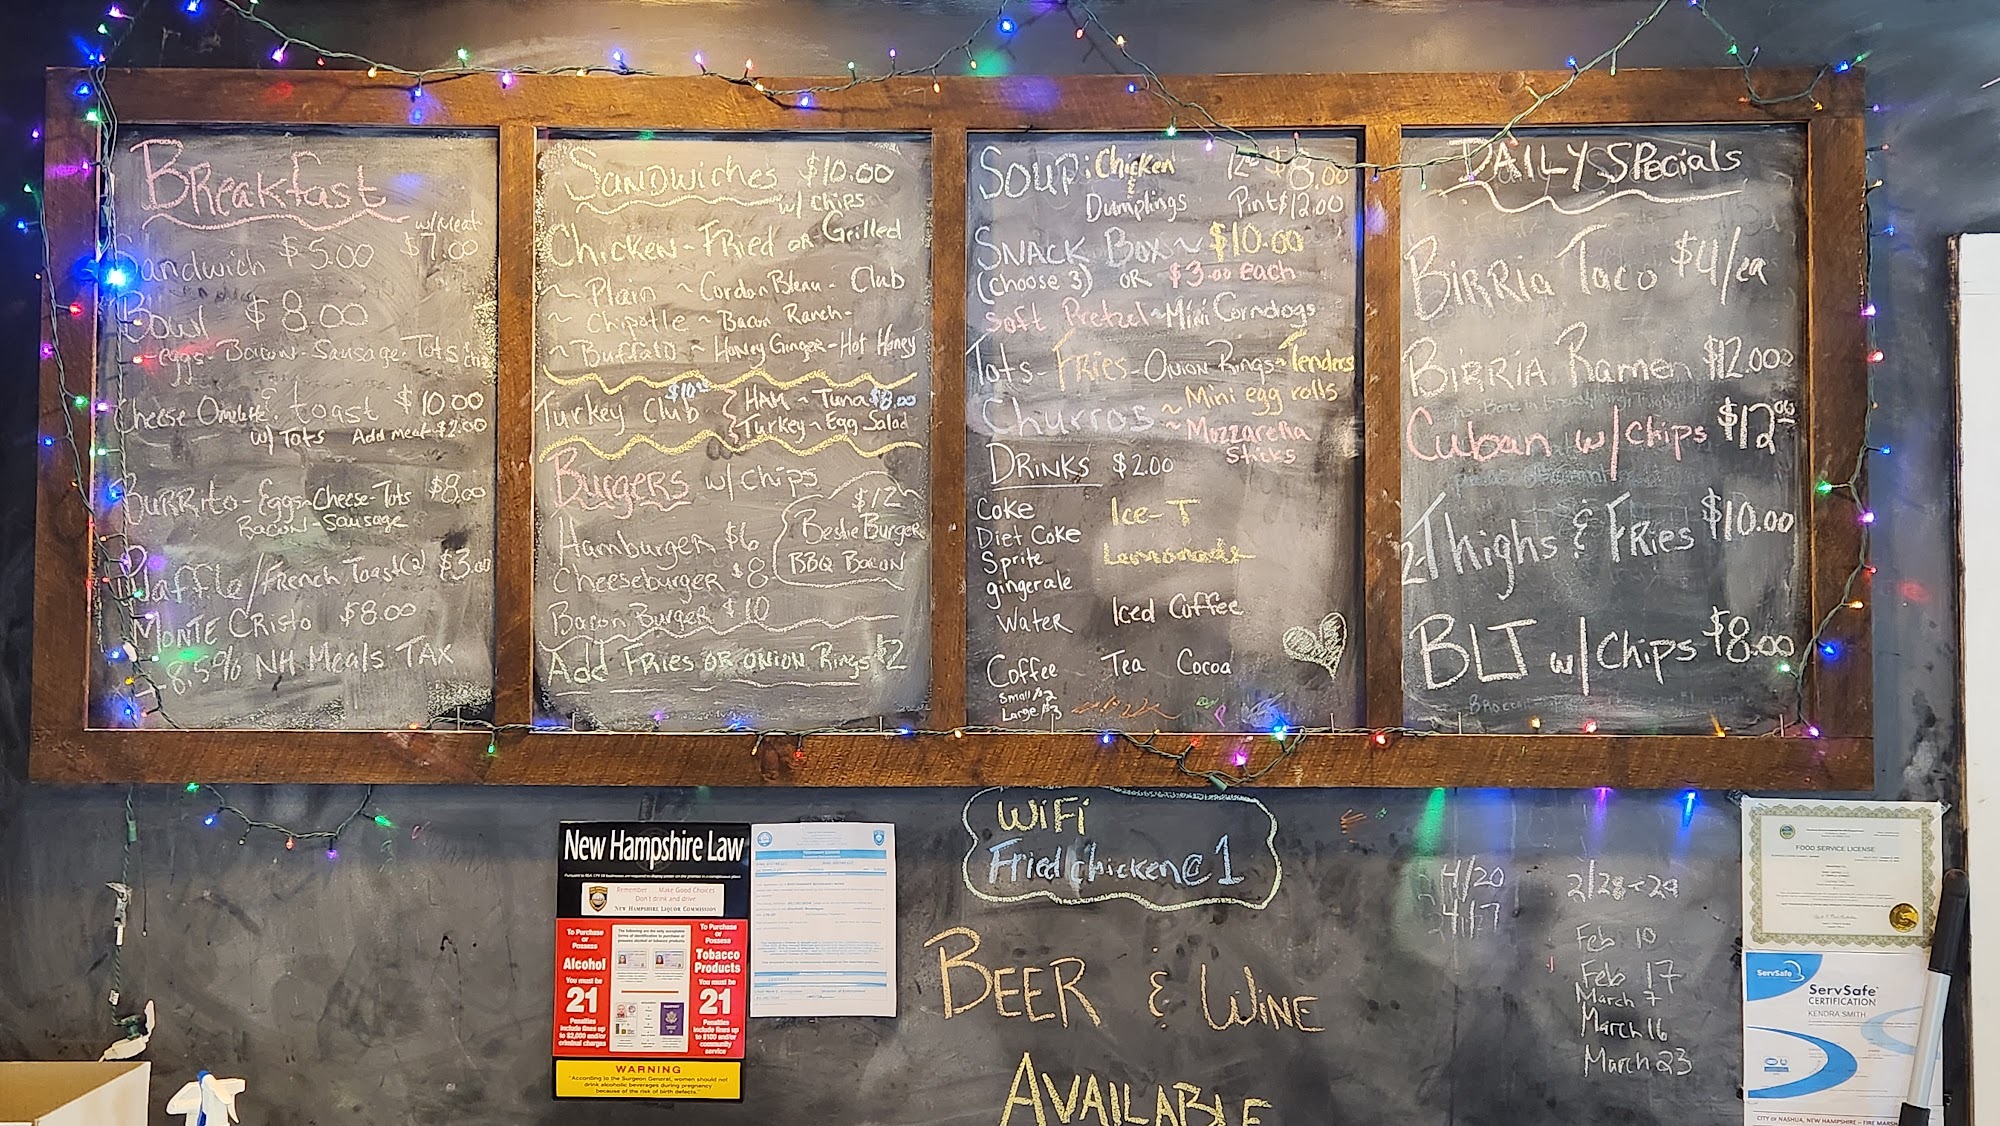 Breakfast
w/ Meat
Sandwich $5.00 $7.00
Bowl $8.00
eggs - Bacon - Sausage - Tots
Cheese Omelette & toast $10.00
w/ Tots Add meat $2.00
Burrito - Eggs - Cheese - Tots $8.00
Bacon - Sausage
Waffle/French Toast(2) $3.00
Monte Cristo $8.00
+ 8.5% NH Meals TAX
Sandwiches $10.00
w/ Chips
Chicken - Fried or Grilled
~ Plain ~ Cordon Bleau - Club
~ Chipotle ~ Bacon Ranch -
~ Buffalo ~ Honey Ginger - Hot Honey
Turkey Club $10.00 HAM ~ Tuna $8.00
Turkey ~ Egg Salad
Burgers w/ Chips
$12
Hamburger $6 Bestie Burger
Cheeseburger $8 BBQ Bacon
Bacon Burger $10
Add Fries or onion Rings $2
Soup: Chicken 12oz $8.00
& Dumplings Pint $12.00
Snack Box ~ $10.00
(choose 3) or $3.00 Each
Soft Pretzel ~ Mini Corndogs
Tots - Fries - Onion Rings ~ Tenders
Churros ~ Mini egg rolls
~ Mozzarella
Sticks
Drinks $2.00
Coke Ice-T
Diet Coke
Sprite Lemonade
gingerale
Water Iced Coffee
Coffee Tea Cocoa
Small $2
Large $3
Daily Specials
Birria Taco $4/ea
Birria Ramen $12.00
Cuban w/ Chips $12.00
2 Thighs & Fries $10.00
BLT w/ Chips $8.00
WiFi
Friedchicken@1
Beer & Wine
Available
4/20
4/17
2/28-29
Feb 10
Feb 17
March 7
March 16
March 23
New Hampshire Law
Remember Make Good Choices
Don't drink and drive
New Hampshire Liquor Commission
To Purchase
or
Possess
Alcohol
You must be
21
Penalties
include fines up
to $2,000 and/or
criminal charges
To Purchase
or
Possess
Tobacco
Products
You must be
21
Penalties
include fines up
to $100 and/or
community
service
WARNING
"According to the Surgeon General, women should not
drink alcoholic beverages during pregnancy
because of the risk of birth defects."
FOOD SERVICE LICENSE
ServSafe
ServSafe
CERTIFICATION
KENDRA SMITH
CITY OF NASHUA, NEW HAMPSHIRE - FIRE MARSH